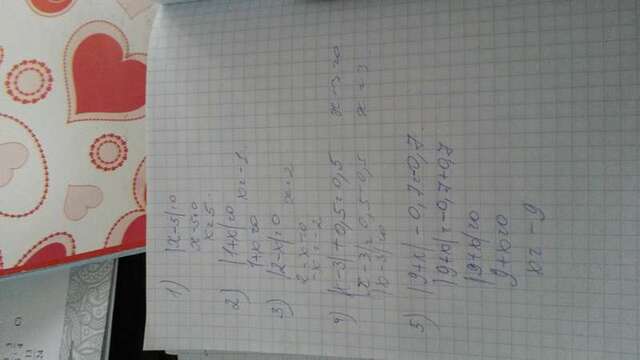 1) |x-5|=0
x-5=0
x=5
2) |1+x|=0
1+x=0 x=-1
3) |2-x|=0
2-x=0 x=2
-x=-2
4) |x-3|+0,5=0,5 x-3=0
|x-3|=0,5-0,5 x=3
|x-3|=0
5) |9+x|-0,7=-0,7
|9+x|=-0,7+0,7
|9+x|=0
9+x=0
x=-9